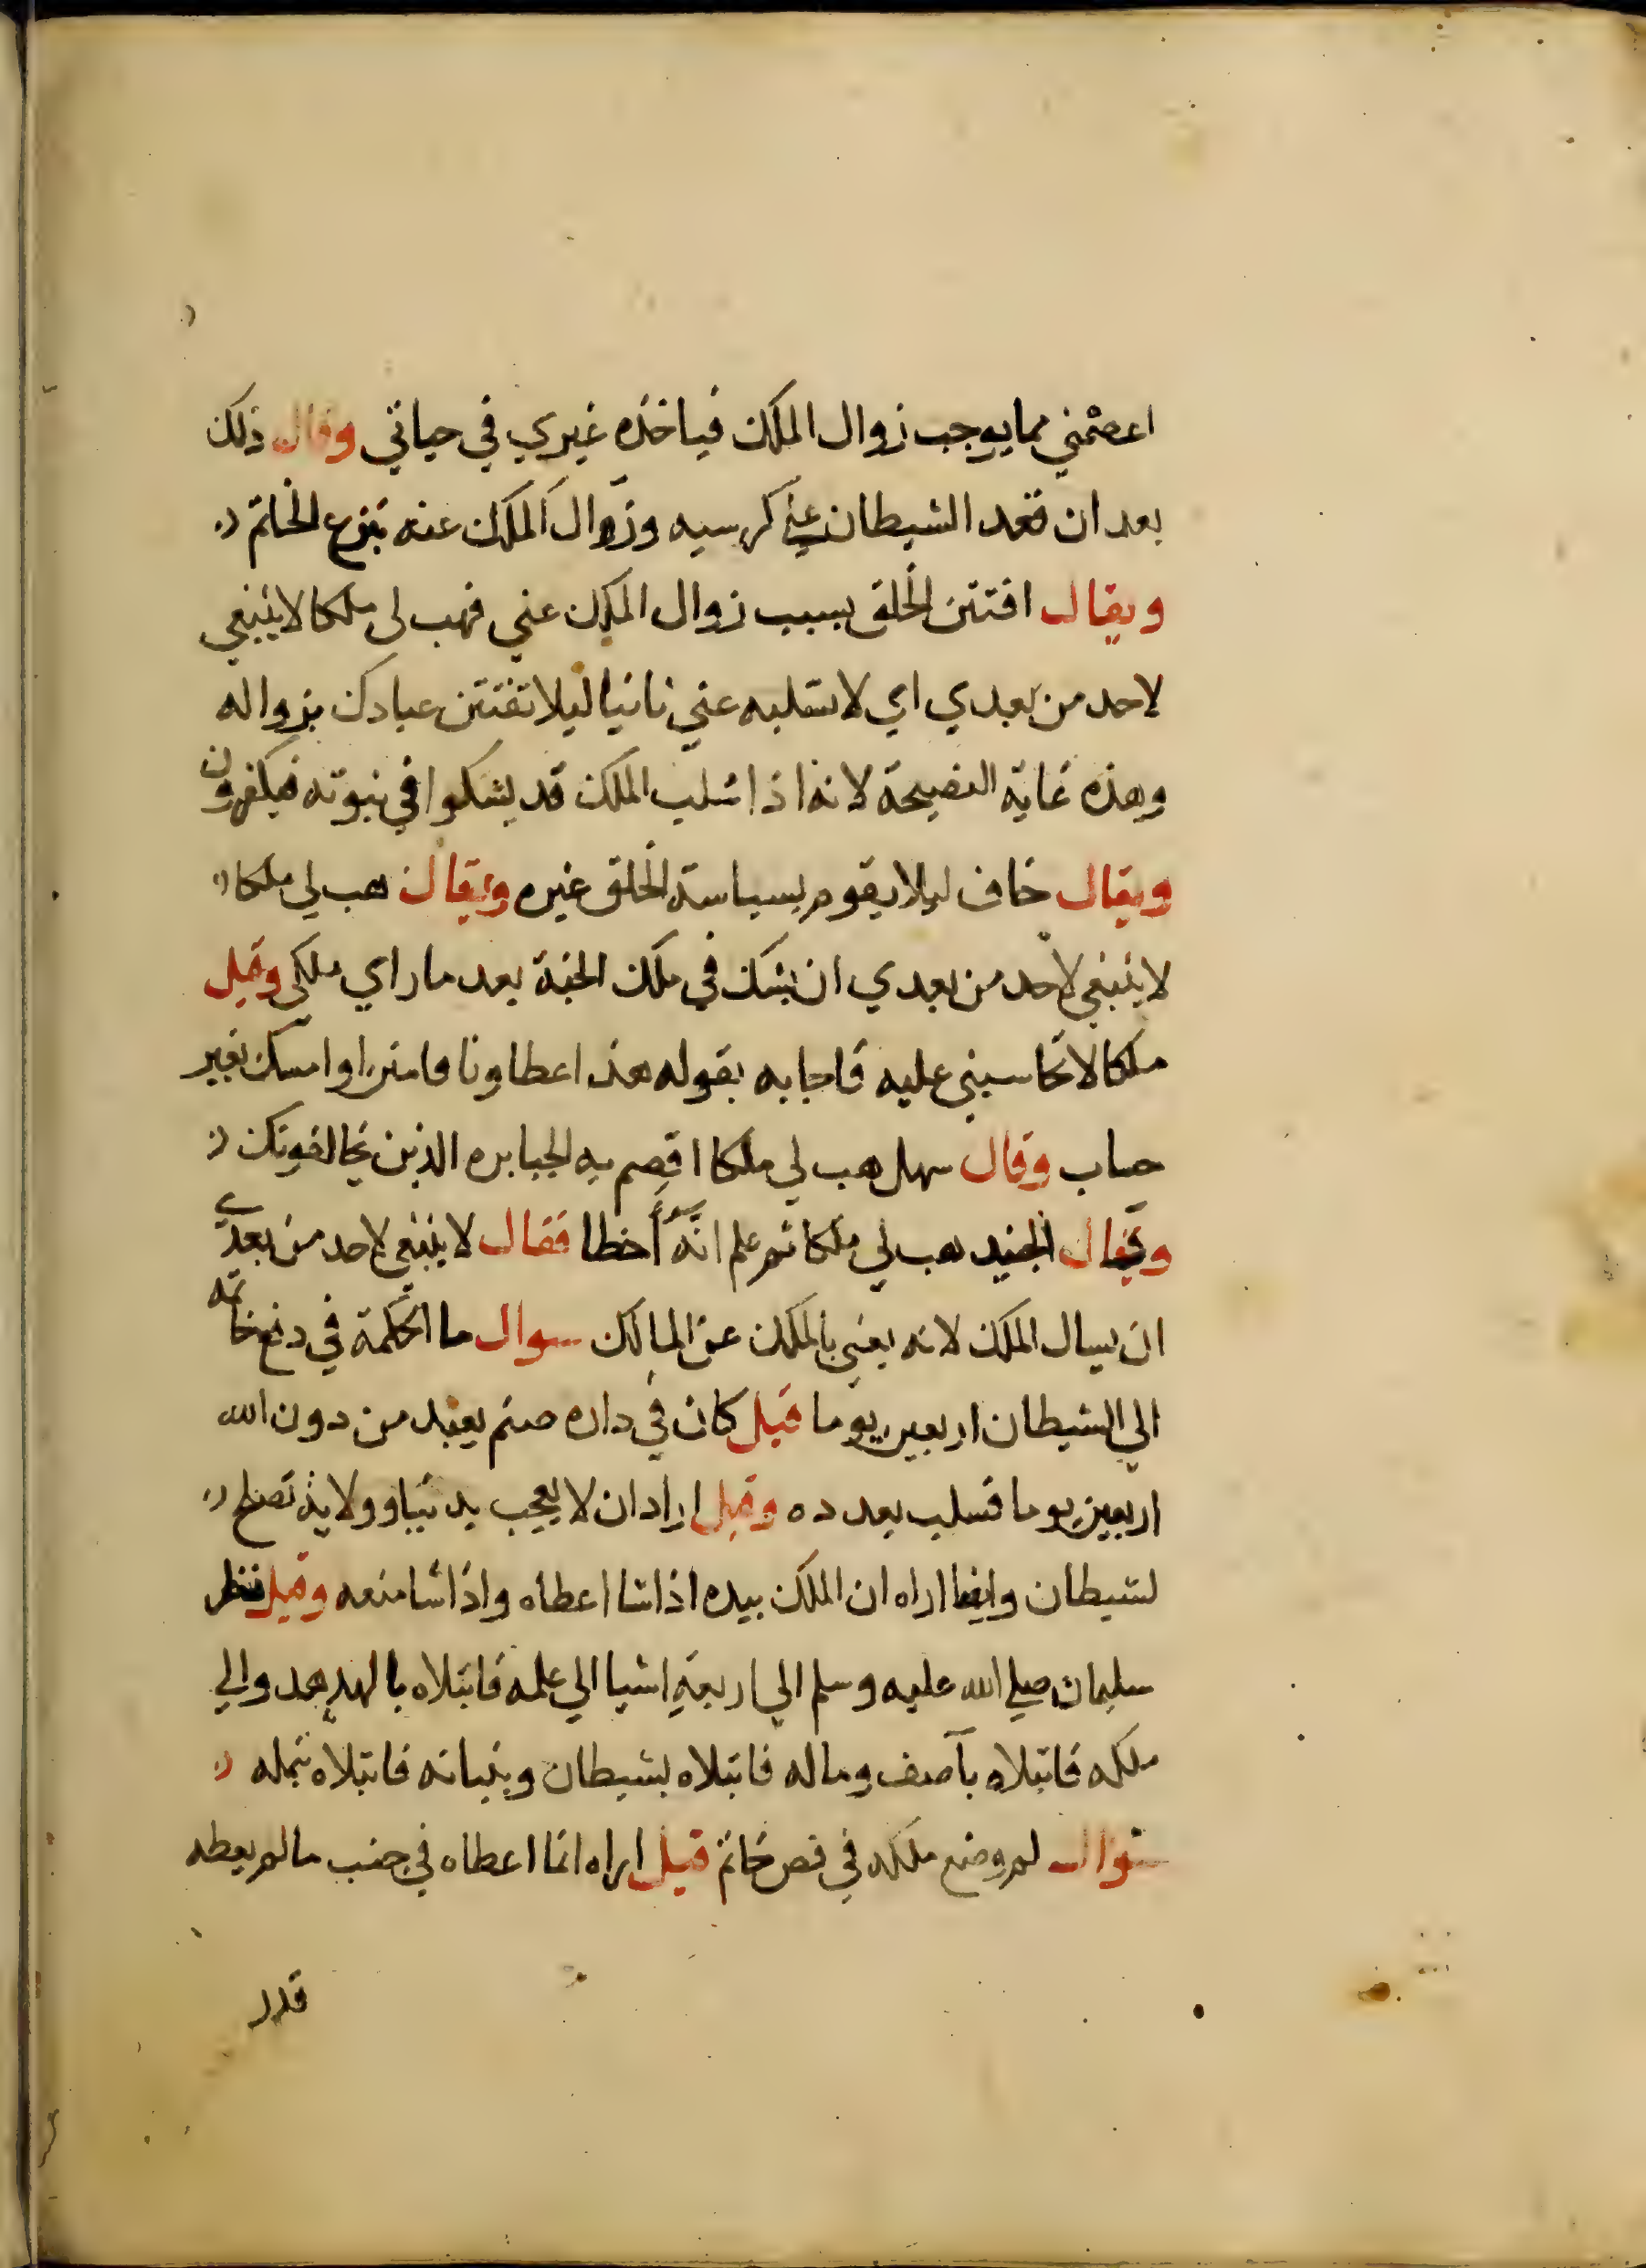 اعصمني مما يوجب زوال الملك فياخذه غيري في حياتي وقال ذلك
بعد ان قعد الشيطان علي كرسيه وزوال الملك عنه بنزع الخاتم
ويقال افتتن الخلق بسبب زوال الملك عني فهب لي ملكا لا ينبغي
لاحد من بعدي اي لا تسلبه عني ثانيا ليلا تفتتن عبادك بزواله
وهذه غاية النصيحة لانه اذا سلب الملك قد يشكوا في نبوته فيكفرون
ويقال خاف ليلا يقوم بسياسة الخلق غيره ويقال هب لي ملكا
لا ينبغي لاحد من بعدي ان يشك في ملك الجنة بعد ما راي ملكي وقيل
ملكا لا تحاسبني عليه فاجابه بقوله هذا عطاونا فامنن او امسك بغير
حساب وقال سهل هب لي ملكا اقصم به الجبابره الذين يخالفونك
وقال الجنيد هب لي ملكا ثم علم انه اخطا فقال لا ينبغي لاحد من بعدي
ان يسال الملك لانه يغني بالملك عن المالك سوال ما الحكمة في دفع خاتمه
الي الشيطان اربعين يوما قيل كان في داره صنم يعبد من دون الله
اربعين يوما فسلب بعدده وقيل اراد ان لا يعجب بدنيا وولاية تصلح
لشيطان وايضا اراه ان الملك بيده اذا شا اعطاه واذا شا منعه وقيل نظر
سليمان صلي الله عليه وسلم الي اربعة اشيا الي علمه فابتلاه بالهدهد والي
ملكه فابتلاه بآصف وماله فابتلاه بشيطان وبنيانه فابتلاه بنمله
سوال لم وضع ملكه في فص خاتم قيل اراه انما اعطاه في جنب ما لم يعطه
قدر